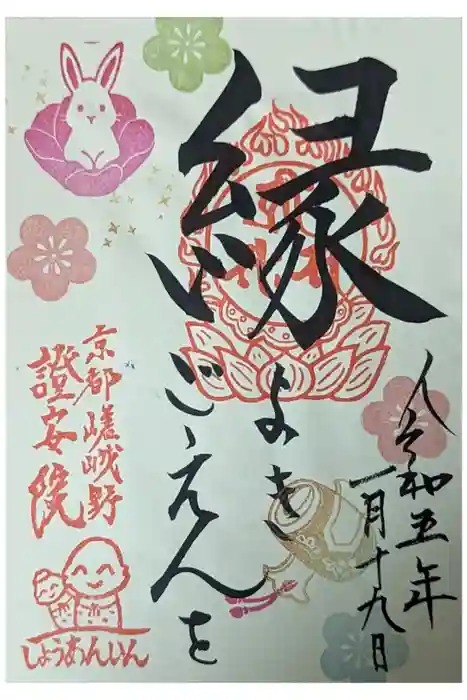 縁
よき
ごえんを
令和五年
一月十九日
京都嵯峨野
證安院
しょうあんいん